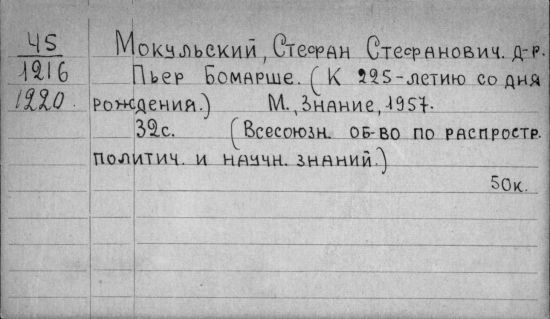 45 Мокульский, Стефан Стефанович. д-р.
1216 Пьер Бомарше. (К 225-летию со дня
1220. рождения.) М., Знание, 1957.
32с. (Всесоюзн. об-во по распростр.
политич. и научн. знаний.)
50к.